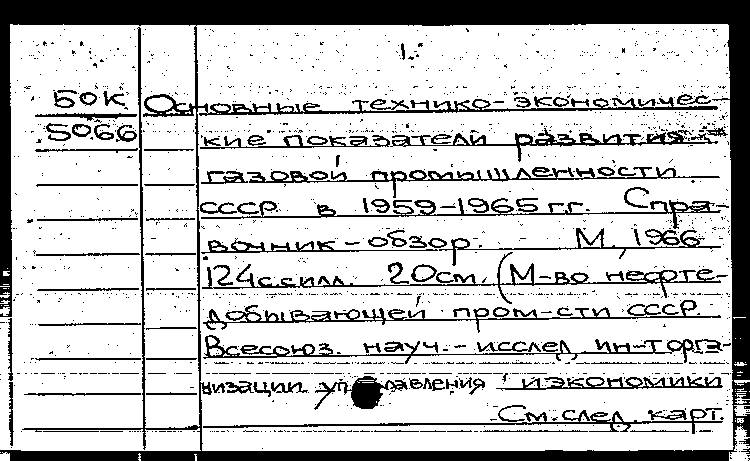 1.
БОК Основные технико-экономичес
5066 кие показатели развития
газовой промышленности
СССР в 1959-1965 г.г. Спра-
вочник-обзор. М., 1966
124с.силл. 20см. (М-во нефте-
добывающей пром-сти СССР.
Всесоюз. науч.-исслед. ин-т орга-
низации управления и экономики
См. след. карт.